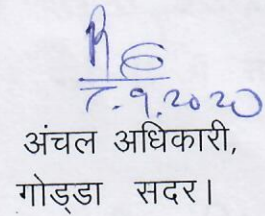 7.9.2020
अंचल अधिकारी,
गोड्डा सदर।